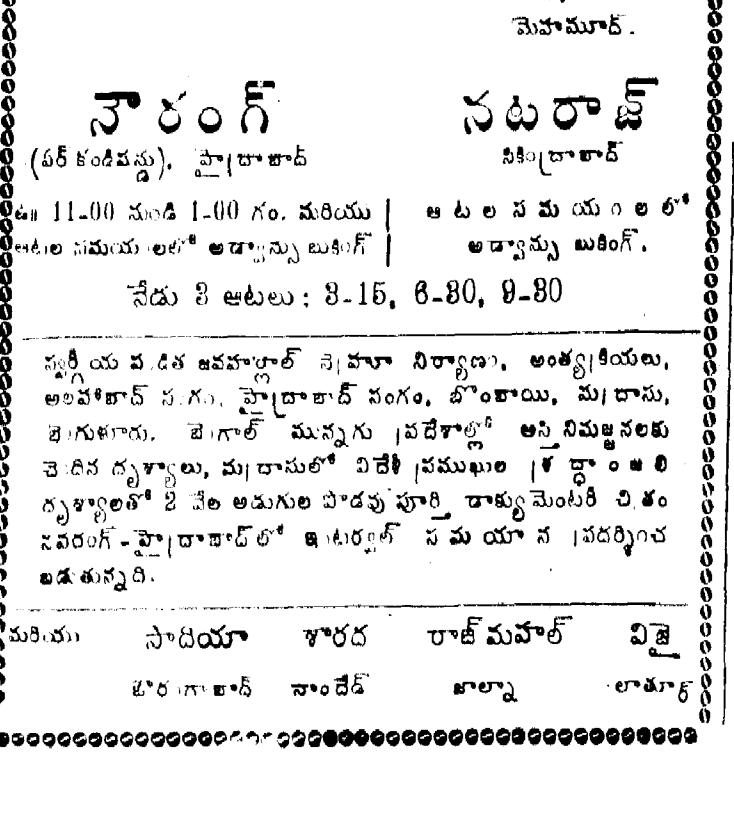 మెహమూద్.
నౌరంగ్ నటరాజ్
(ఏర్ కండిషన్డు), హైద్రాబాద్ సికింద్రాబాద్
ఉ॥ 11-00 నుండి 1-00 గం. మరియు ఆటల సమయాలలో
ఆటల సమయాలలో అడ్వాన్సు బుకింగ్ అడ్వాన్సు బుకింగ్.
నేడు 3 ఆటలు : 3-15, 6-30, 9-30
స్వర్గీయ పండిత జవహర్లాల్ నెహ్రూ నిర్యాణం, అంత్యక్రియలు,
అలహాబాద్ సంగం, హైద్రాబాద్ సంగం, బొంబాయి, మద్రాసు,
బెంగుళూరు, బెంగాల్ మున్నగు ప్రదేశాల్లో అస్తి నిమజ్జనలకు
చెందిన దృశ్యాలు, మద్రాసులో విదేశీ ప్రముఖుల శ్రద్ధాంజలి
దృశ్యాలతో 2 వేల అడుగుల పొడవు పూర్తి డాక్యుమెంటరీ చిత్రం
నవరంగ్-హైద్రాబాద్‌లో ఇంటర్వల్ సమయాన ప్రదర్శించ
బడుతున్నది.
మరియు సాదియా శారద రాజ్ మహల్ విజై
ఔరంగాబాద్ నాందేడ్ జాల్నా లాతూర్